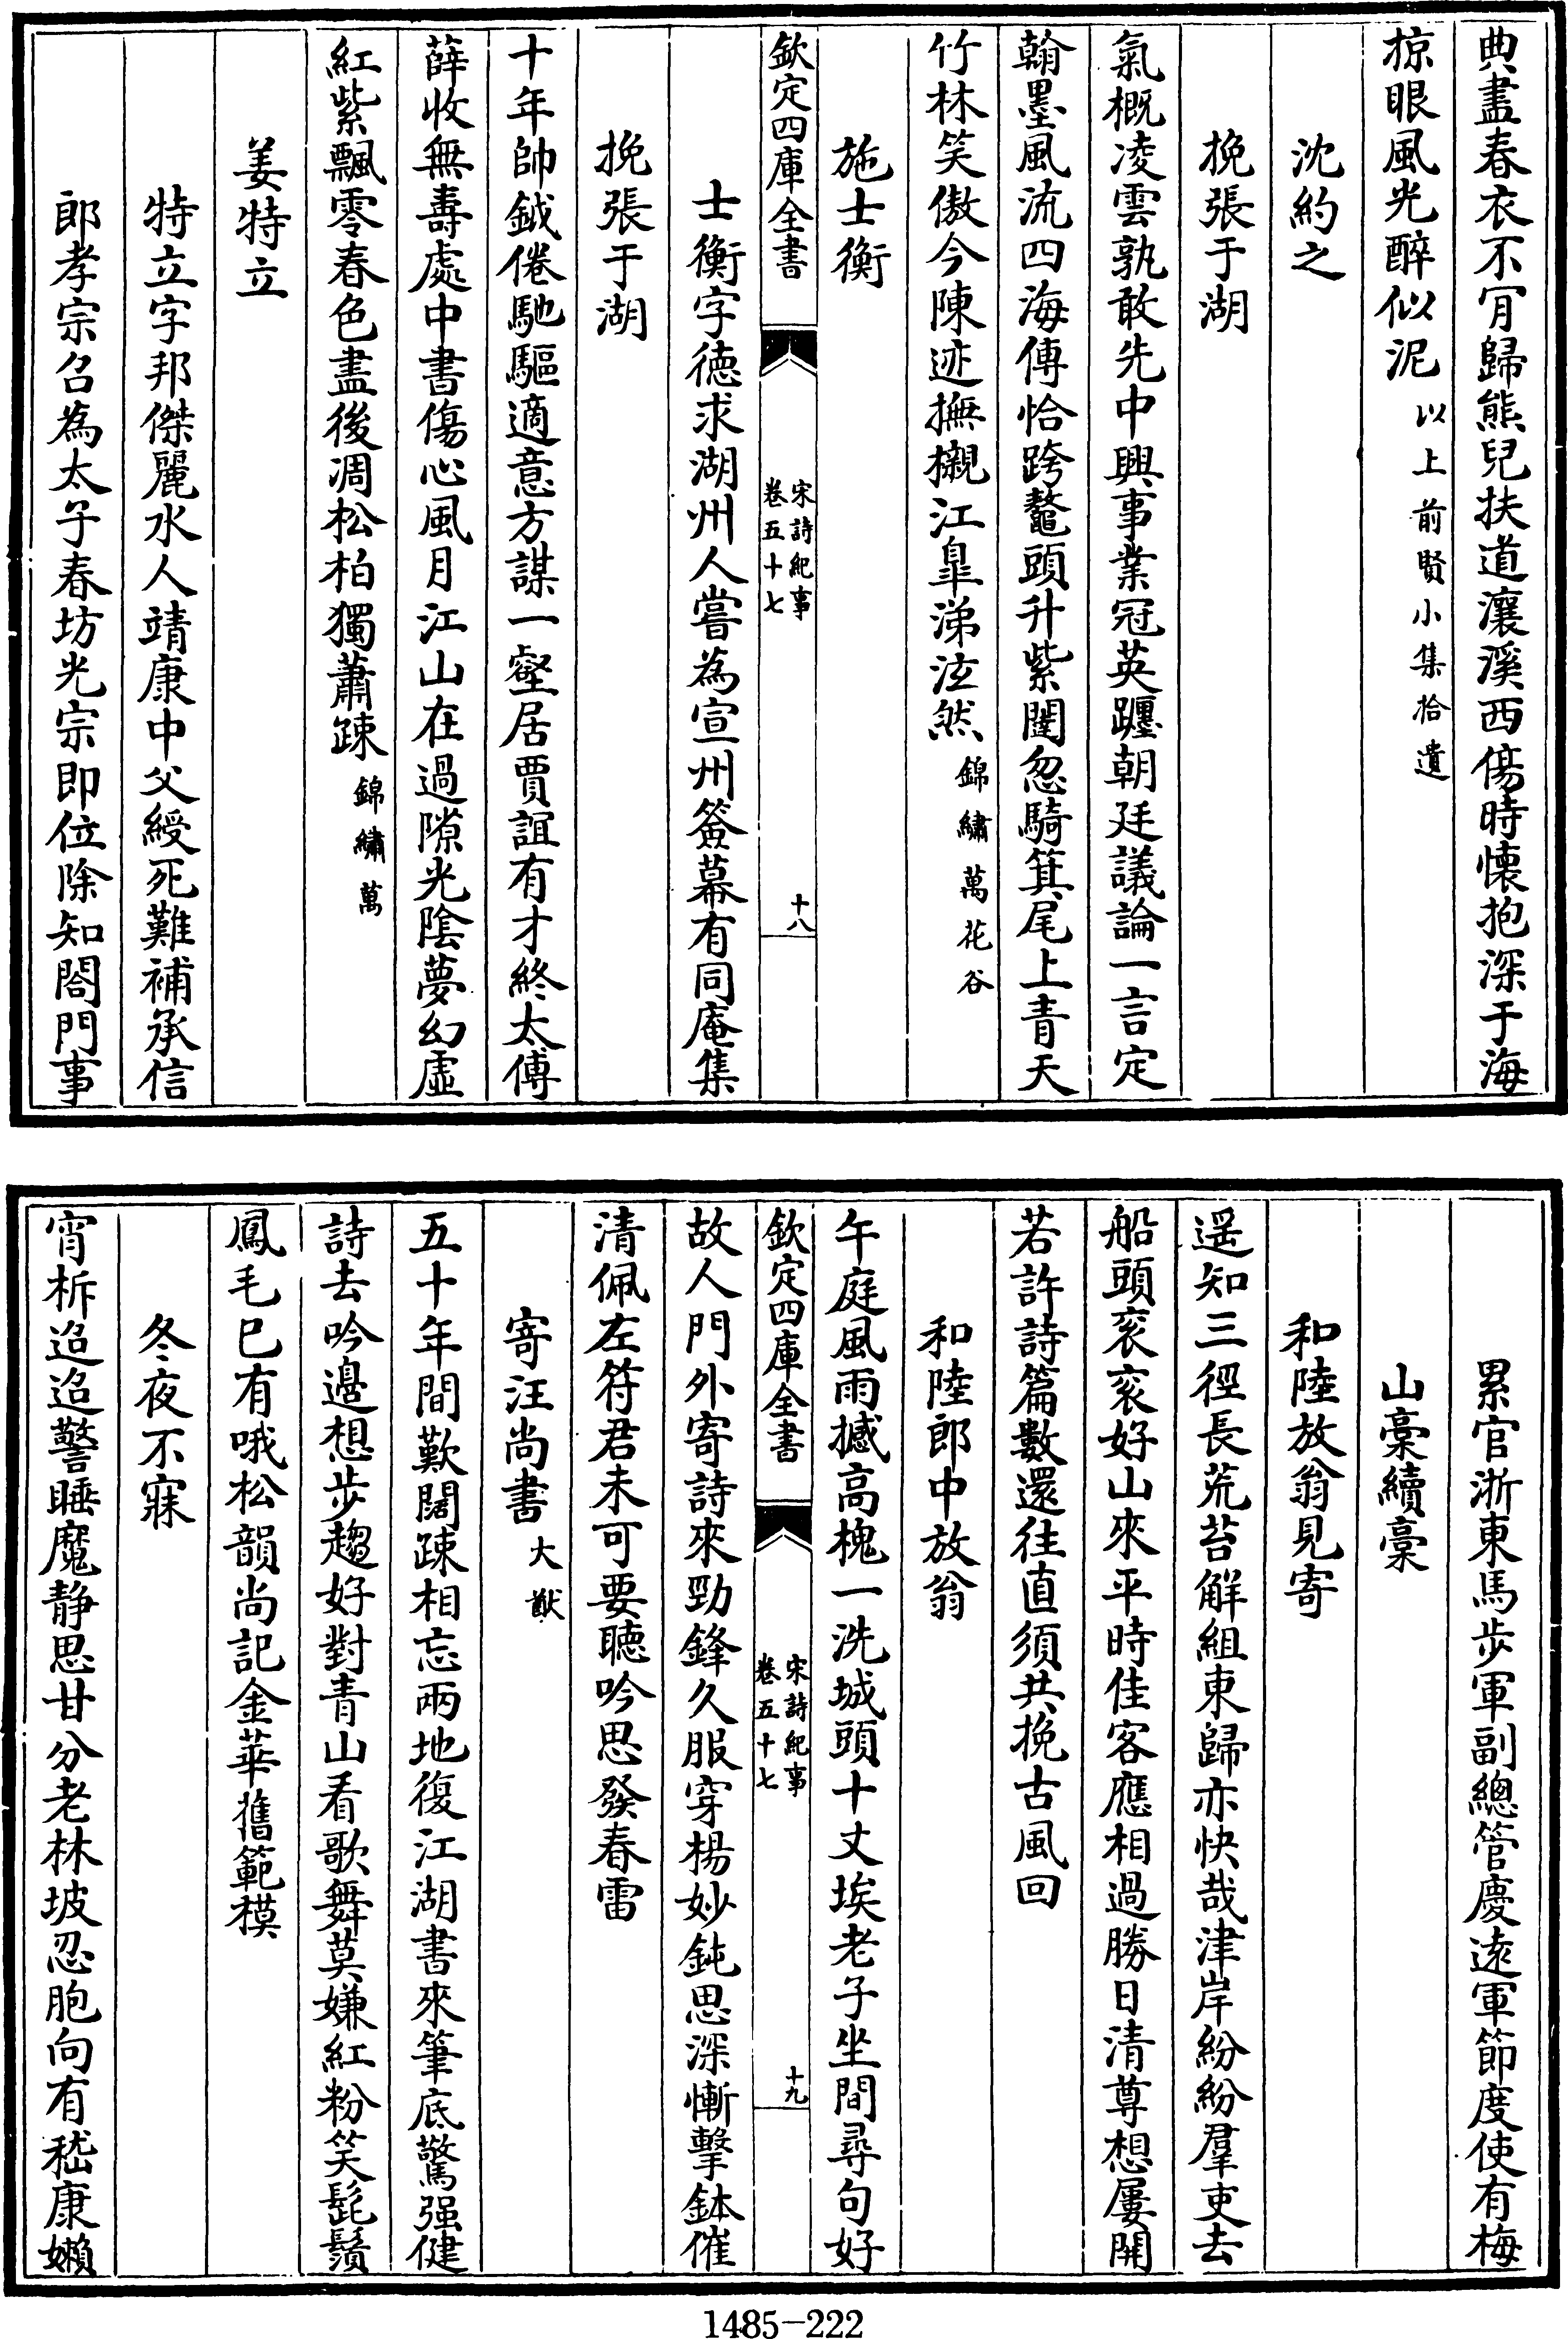 典盡春衣不肎歸熊兒扶道瀼溪西傷時懷抱深于海
掠眼風光醉似泥以上前賢小集拾遺
沈約之
挽張于湖
氣概凌雲孰敢先中興事業冠英躔朝廷議論一言定
翰墨風流四海傳恰跨鼇頭升紫闥忽騎箕尾上青天
竹林笑傲今陳迹撫櫬江臯涕泫然錦繡萬花谷
施士衡
欽定四庫全書
宋詩紀事
卷五十七
十八
士衡字德求湖州人嘗為宣州簽幕有同庵集
挽張于湖
十年帥鉞倦馳驅適意方謀一壑居賈誼有才終太傅
薛收無壽處中書傷心風月江山在過隙光陰夢幻虛
紅紫飄零春色盡後凋松柏獨蕭踈錦繡萬
姜特立
特立字邦傑麗水人靖康中父綬死難補承信
郎孝宗召為太子春坊光宗即位除知閤門事
累官浙東馬步軍副總管慶遠軍節度使有梅
山藁續藁
和陸放翁見寄
遥知三徑長荒苔解組東歸亦快哉津岸紛紛羣吏去
船頭衮衮好山來平時佳客應相過勝日清尊想屢開
若許詩篇數還往直須共挽古風回
和陸郎中放翁
午庭風雨撼高槐一洗城頭十丈埃老子坐間尋句好
欽定四庫全書
宋詩紀事
卷五十七
十九
故人門外寄詩來勁鋒久服穿楊妙鈍思深慚擊鉢催
清佩左符君未可要聽吟思發春雷
寄汪尚書大猷
五十年間歎闊踈相忘兩地復江湖書來筆底驚强健
詩去吟邊想步趨好對青山看歌舞莫嫌紅粉笑髭鬚
鳳毛已有哦松韻尚記金華舊範模
冬夜不寐
宵柝迢迢警睡魔静思甘分老林坡忍胞向有嵇康嬾
1485-222